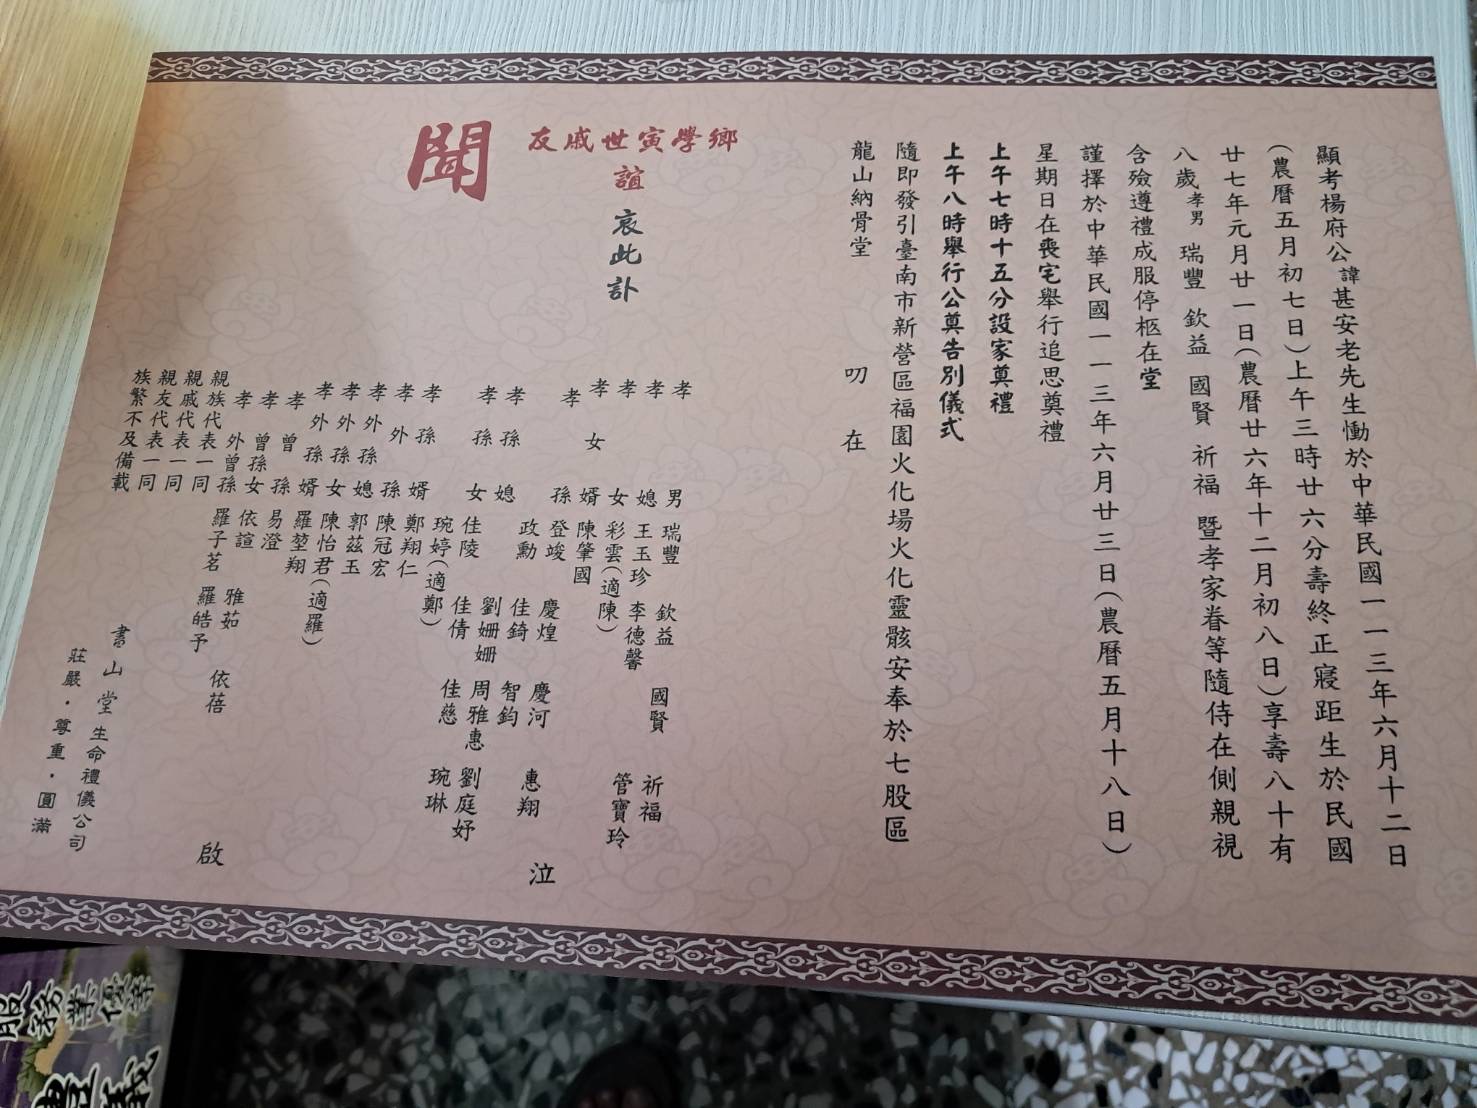 顯考楊府公諱甚安老先生慟於中華民國一一三年六月十二日
(農曆五月初七日)上午三時廿六分壽終正寢距生於民國
廿七年元月廿一日(農曆廿六年十二月初八日)享壽八十有
八歲孝男 瑞豐 欽益 國賢 祈福 暨孝家眷等隨侍在側親視
含殮遵禮成服停柩在堂
謹擇於中華民國一一三年六月廿三日(農曆五月十八日)
星期日在喪宅舉行追思奠禮
上午七時十五分設家奠禮
上午八時舉行公奠告別儀式
隨即發引臺南市新營區福園火化場火化靈骸安奉於七股區
龍山納骨堂
叨在
鄉學寅世戚友
誼
哀此訃
聞
孝男 瑞豐 欽益 國賢 祈福
孝媳 王玉珍 李德馨 管寶玲
孝女 彩雲(適陳)
孝女婿 陳肇國
孝孫 登竣 慶煌 慶河 惠翔
政勳 佳錡 智鈞
孝孫媳 劉姍姍 周雅惠 劉庭妤
孝孫女 佳陵 佳倩 佳慈 琬琳
琬婷(適鄭)
孝孫婿 鄭翔仁
孝外孫 陳冠宏
孝外孫媳 郭茲玉
孝外孫女 陳怡君(適羅)
孝外孫婿 羅堃翔
孝曾孫 易澄
孝曾孫女 依諠 雅茹 依蓓
孝外曾孫 羅子茗 羅皓予
親族代表一同
親戚代表一同
親友代表一同
族繁不及備載
泣
啟
書山堂生命禮儀公司
莊嚴・尊重・圓滿
服務業優等